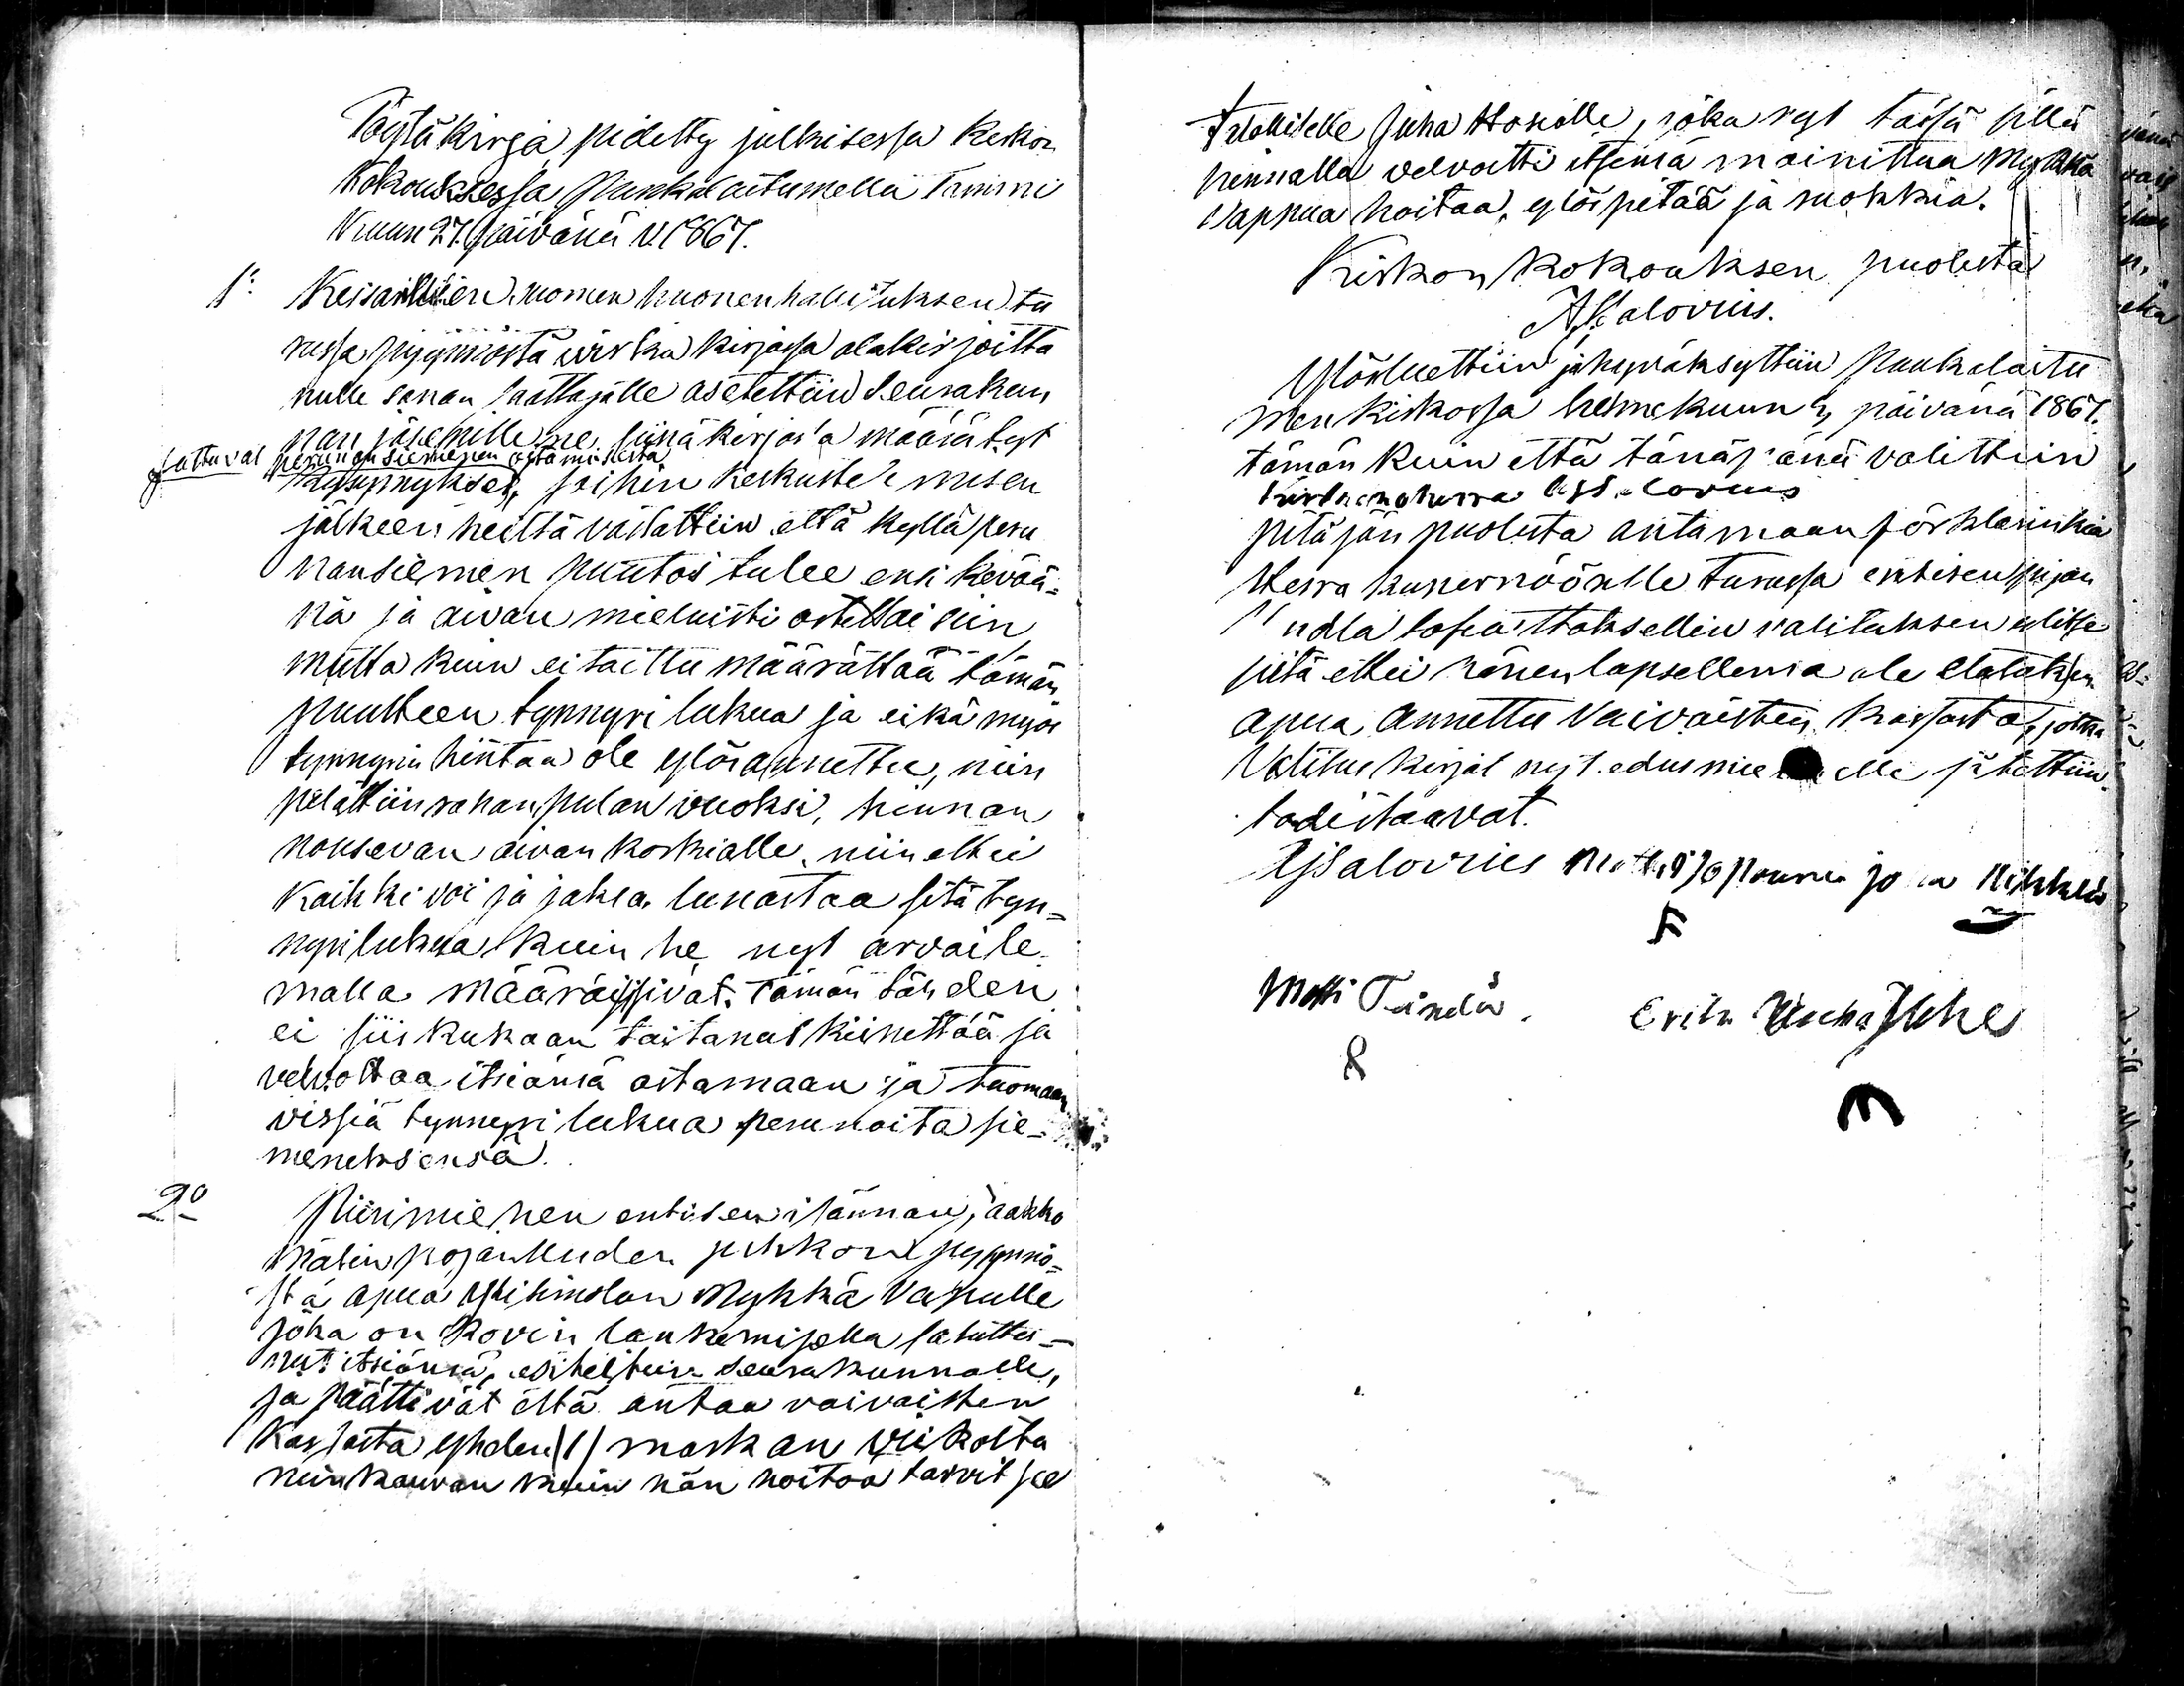 Pöytäkirja pidetty julkisessa Kirkon
Kokouksessa Punkalaitumella Tammi
Kuun 27. päivänä v. 1867.
1:o Keisarillisen Suomen huonenhallituksen Tu
russa pyynnöstä kirjassa alakirjoitta
nulle sanan saattajalle asetettiin Seurakun
nan jäsenille ne siinä kirjassa määrätyt
sattuvat perunan siemenen ostamisesta
kysymykset, joihin keskustelemisen
jälkeen heiltä vastattiin että kyllä peru
nansiemen puutos tulee ensi kevää-
nä ja aivan mieluisti ostettaisiin,
mutta kuin ei taittu määrättää tämän
puutteen tynnyri lukua ja eikä myös
tynnyrin hintaa ole ylösannettu, niin
pelättiin rahan pulan vuoksi, hinnan
nousevan aivan korkialle, niin ettei
kaikki voi ja jaksa lunastaa sitä tyn-
nyrilukua kuin he nyt arvaile
malla määräisivät. Tämän tähden
ei siis kukaan taitanut kiinnittää ja
velvoittaa itsiänsä ostamaan ja tuomaan
vissiä tynnyri lukua perunoita sie-
meneksensä.
2:o Piirimiehen entisen isännän, Jaakko
Matin pojan pyynnö-
stä apua Mykkä Vapulle
joka on kovin laukemisella satutta-
nut itsiänsä, esiteltiin seurakunnalle,
ja päättivät että antaa vaivaisten
Kassasta yhden (1) markan viikolta
niinkauvan kuin hän hoitoa tarvitsee
Juha joka nyt tässä sillä
hinnalla velvoitti itsensä mainittua Mykkä
Vappua hoitaa, ylöspitää ja ruokkia.
Kirkon kokouksen puolesta
A. J. Salovius.
Ylösluettiin ja hyväksyttiin Punkalaitu
men kirkossa helmekuun 3 päivänä 1867.
tämän kuin että tänäpänä valittiin
Kirkkoherra A J Salovius
pitäjän puolesta antamaan förklarinkia
Herra kuvernöörille Turussa entisen piian
valituksen ylitse
siitä ettei hänen lapsellensa ole elatuksen
apua annettu Vaivaisten kassasta, jotka
Valitus kirjat nyt edusmiehelle jätettiin.
todistaavat.
A J Salovius
Matti
Erik Uusi